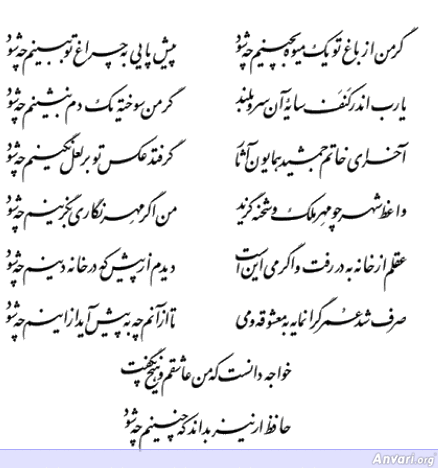 گر من از باغ تو یک میوه بچینم چه شود پیش پایی به چراغ تو ببینم چه شود
یا رب اندر کنف سایهٔ آن سرو بلند گر من سوخته یک دم بنشینم چه شود
آخر ای خاتم جمشید همایون آثار گر فتد عکس تو بر لعل نگینم چه شود
واعظ شهر چو مهر ملک و شحنه گزید من اگر مهر نگاری بگزینم چه شود
عقلم از خانه به در رفت و اگر می این است دیدم از پیش که در خانه دینم چه شود
صرف شد عمر گرانمایه به معشوقه و می تا از آنم چه به پیش آید از اینم چه شود
خواجه دانست که من عاشقم و هیچ نگفت
حافظ ار نیز بداند که چنینم چه شود
Anvari.org